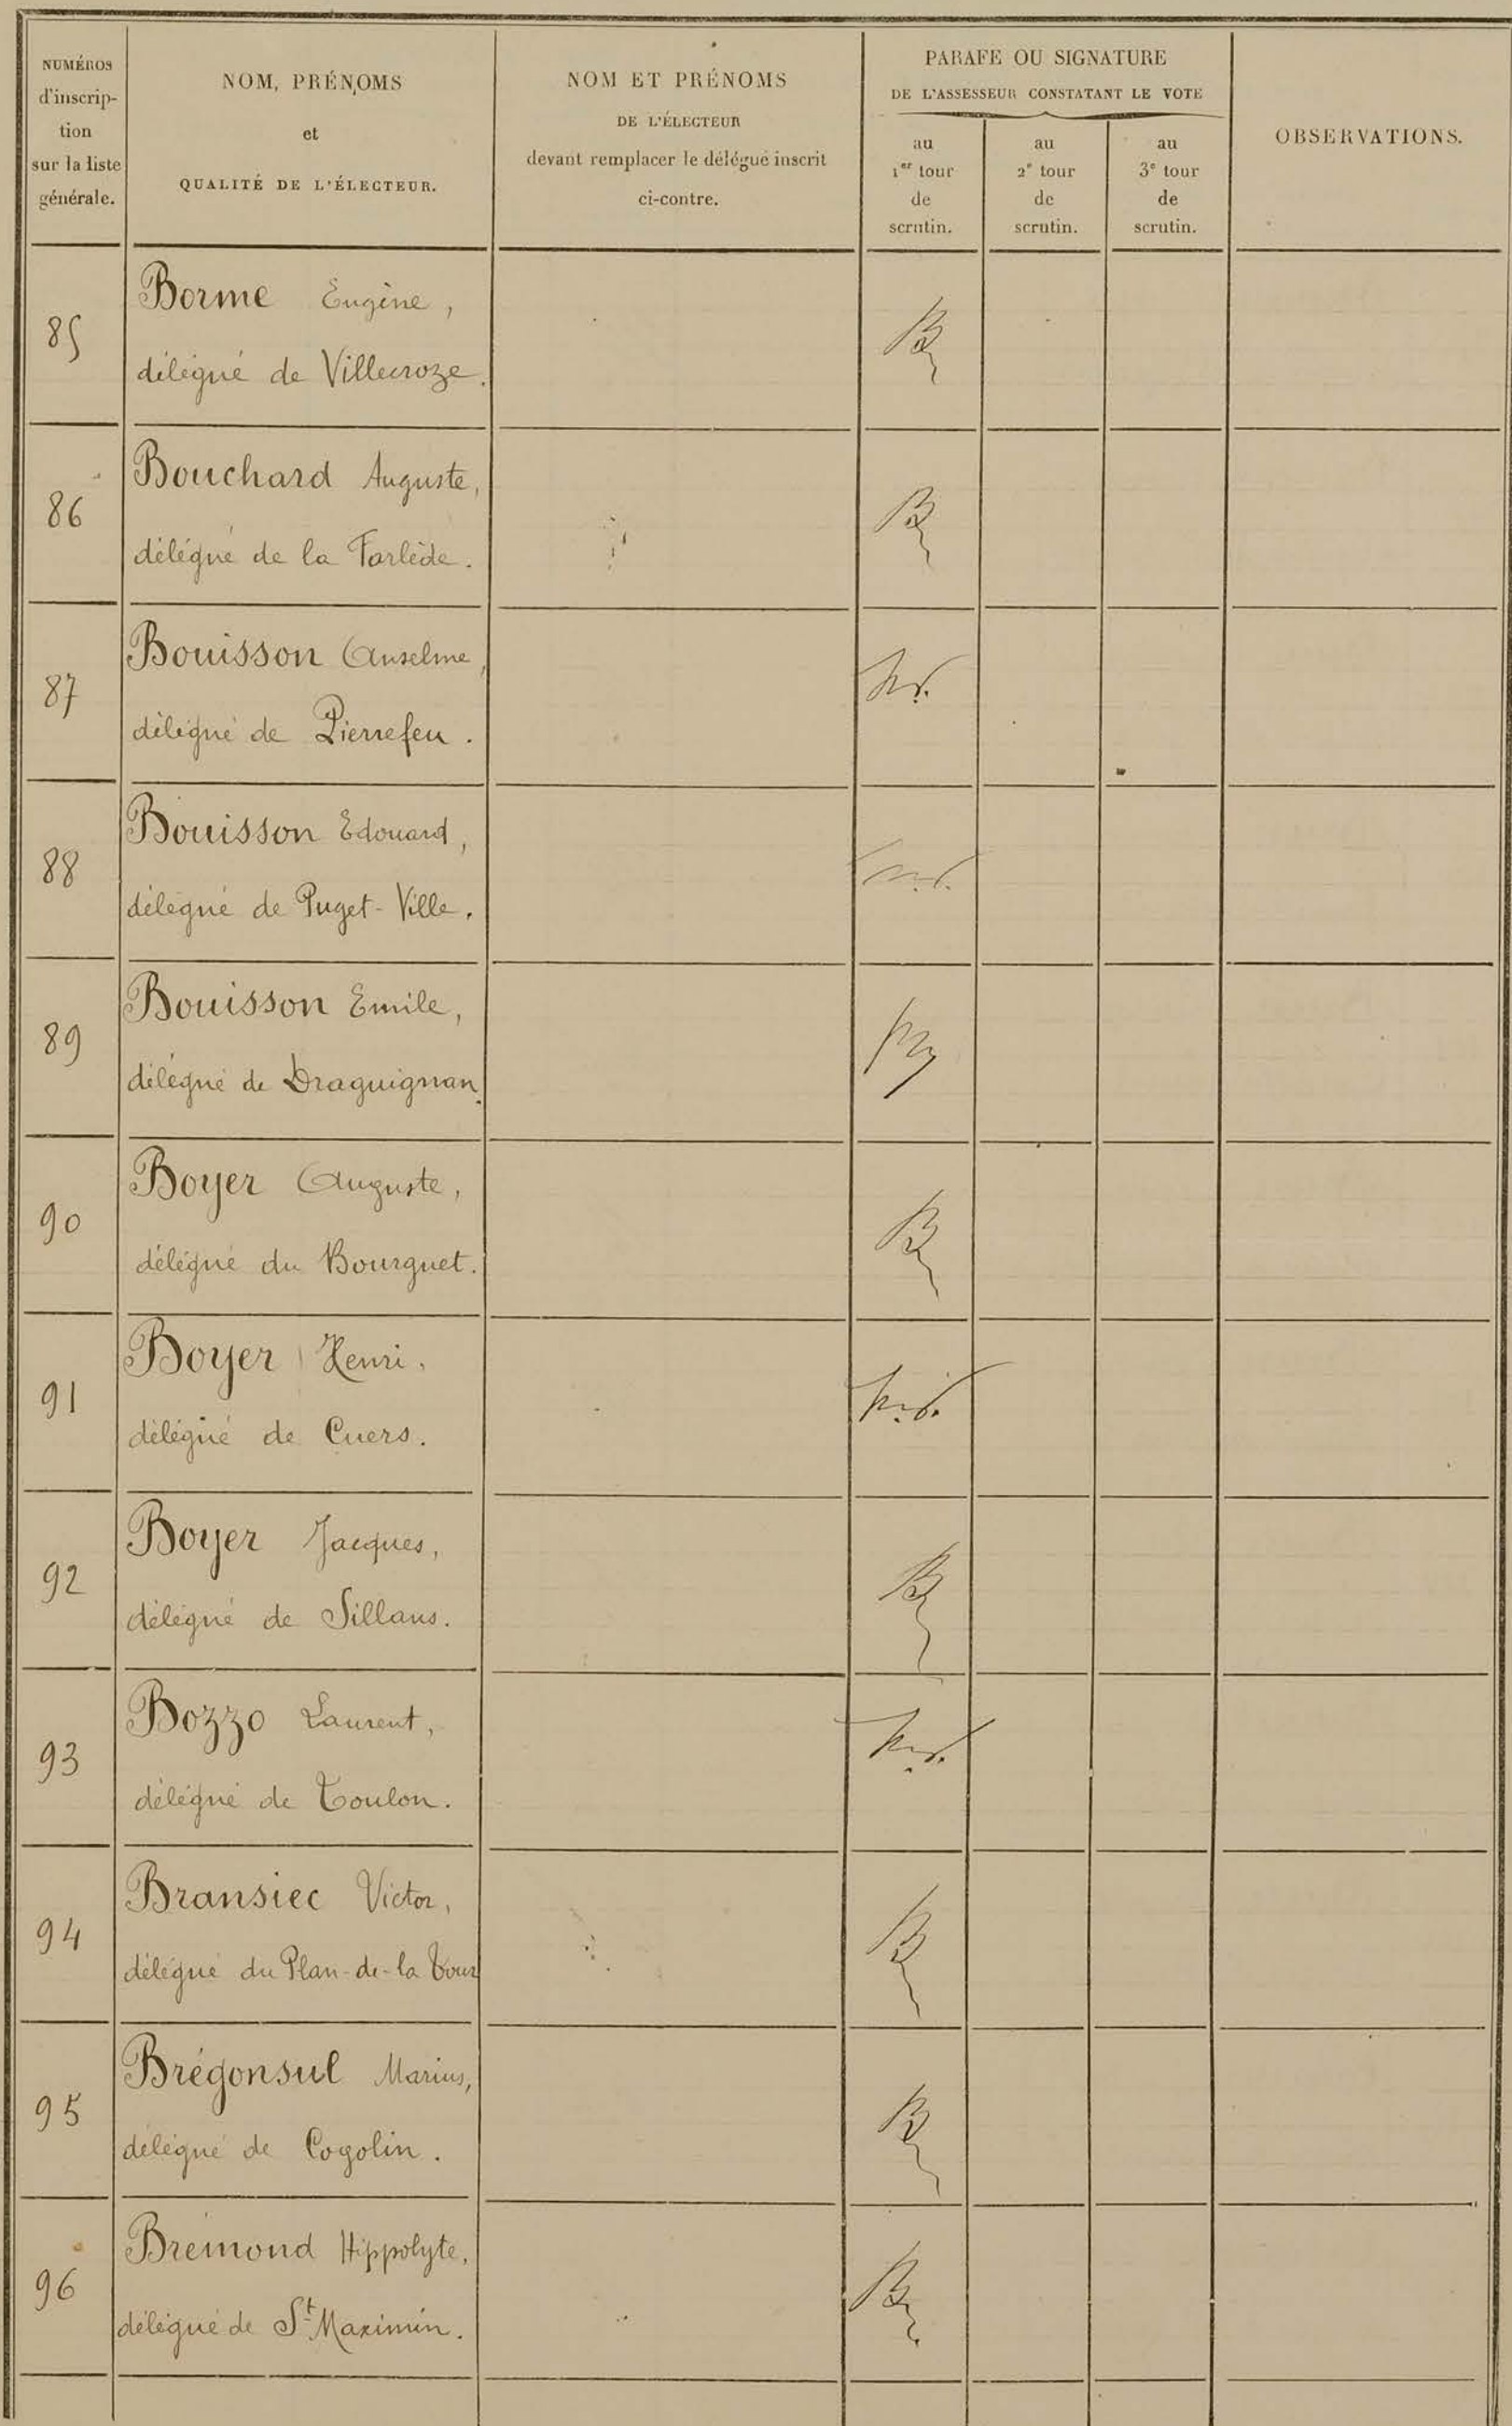 NUMÉROS
d'inscrip-
tion
sur la liste
générale.
NOM, PRÉNOMS
et
QUALITÉ DE L'ÉLECTEUR.
NOM ET PRÉNOMS
DE L'ÉLECTEUR
devant remplacer le délégué inscrit
ci-contre.
PARAFE OU SIGNATURE
DE L'ASSESSEUR CONSTATANT LE VOTE
au
1er tour
de
scrutin.
au
2e tour
de
scrutin.
au
3e tour
de
scrutin.
OBSERVATIONS.
85
Borme Eugène,
délégué de Villecroze.
86
Bouchard Auguste,
délégué de la Farlède.
87
Bouisson Anselme,
délégué de Pierrefeu.
88
Bouisson Edouard,
délégué de Puget-Ville.
89
Bouisson Emile,
délégué de Draguignan.
90
Boyer Auguste,
délégué du Bourguet.
91
Boyer Henri,
délégué de Cuers.
92
Boyer Jacques,
délégué de Sillans.
93
Bozzo Laurent,
délégué de Toulon.
94
Bransiec Victor,
délégué du Plan-de-la Tour
95
Brégonsul Marius,
délégué de Cogolin.
96
Brémond Hippolyte,
délégué de St Maximin.